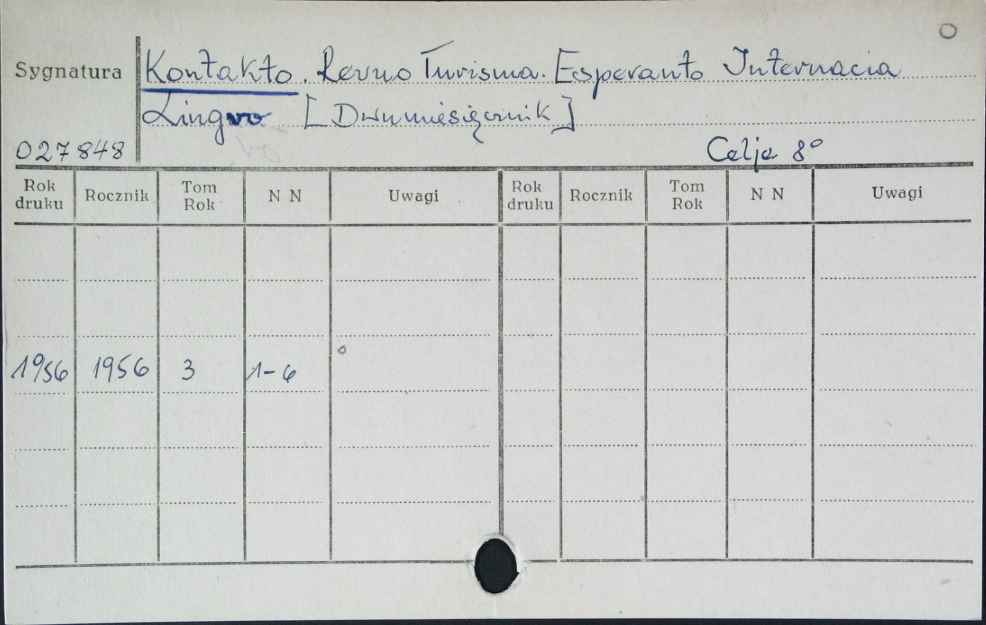 O
Sygnatura Kontakto. Revuo Turisma. Esperanto Internacia
Lingvo [Dwumiesięcznik]
027848 Celje 8°
Rok druku Rocznik Tom Rok N N Uwagi Rok druku Rocznik Tom Rok N N Uwagi
1956 1956 3 1-6 o